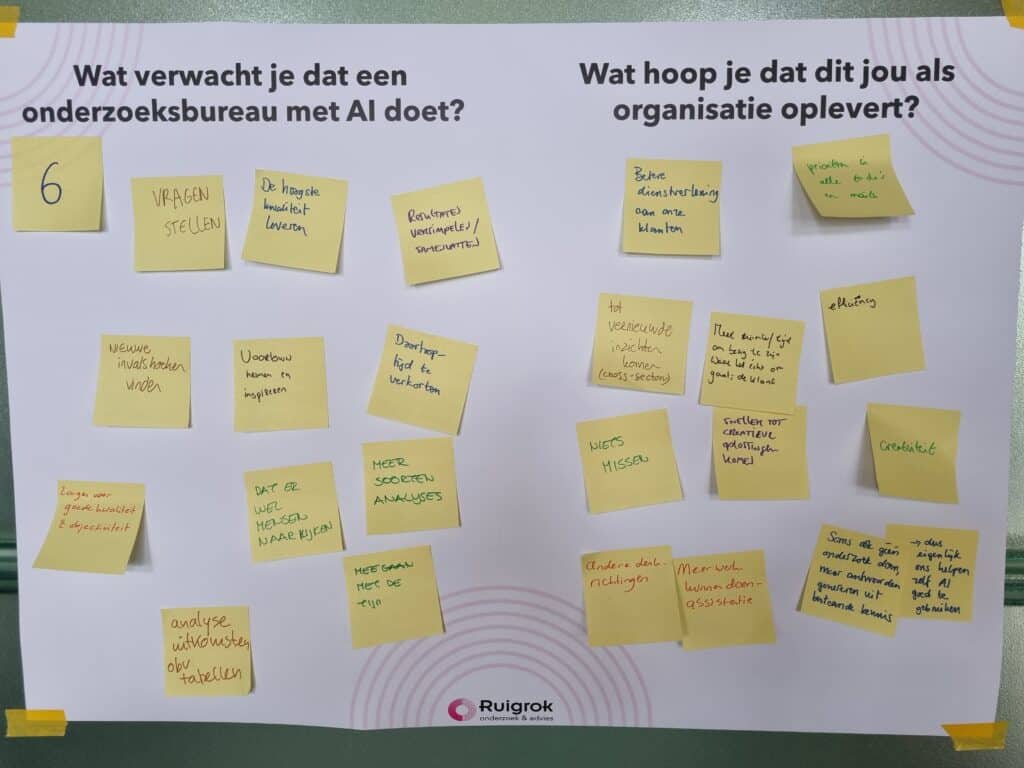 Wat verwacht je dat een
onderzoeksbureau met AI doet?
6
VRAGEN
STELLEN
De hoogste
kwaliteit
leveren
RESULTATEN
VERSIMPELEN/
SAMENVATTEN
NIEUWE
invalshoeken
vinden
Voortouw
nemen en
inspireren
Doorloop-
tijd te
verkorten
Zorgen voor
goede kwaliteit
& objectiviteit
DAT ER
WEL
MENSEN
NAAR KIJKEN
MEER
SOORTEN
ANALYSES
MEEGAAN
MET DE
TIJD
analyse
uitkomsten
obv
tabellen
Wat hoop je dat dit jou als
organisatie oplevert?
Betere
dienstverlening
aan onze
klanten
prioriteren in
alle to do's
en mails
tot
vernieuwde
inzichten
komen
(cross-sector)
Meer ruimte/tijd
om bezig te zijn
waar het echt om
gaat: de klant
efficiency
NIETS
MISSEN
SNELLER TOT
CREATIEVE
oplossingen
KOMEN
Creativiteit
Andere denk-
richtingen
Meer werk
kunnen doen-
assistentie
Soms ook geen
onderzoek doen,
maar antwoorden
genereren uit
bestaande kennis
→ dus
eigenlijk
ons helpen
zelf AI
goed te
gebruiken
Ruigrok
onderzoek & advies